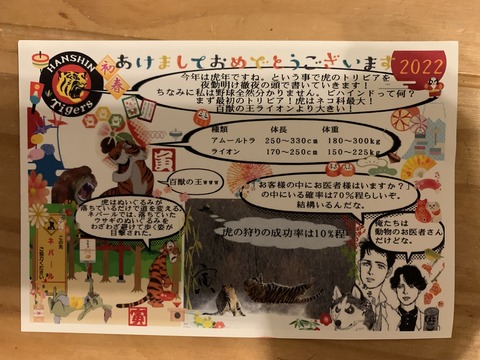 HANSHIN
Tigers
初春
あけましておめでとうございます
2022
今年は虎年ですね。という事で虎のトリビアを
夜勤明け徹夜の頭で書いていきます！
ちなみに私は野球全然分かりません。ビハインドって何？
まず最初のトリビア！虎はネコ科最大！
百獣の王ライオンより大きい！
種類 体長 体重
アムールトラ 250～330㎝ 180～300kg
ライオン 170～250㎝ 150～225kg
寅
百獣の王www
お客様の中にお医者様はいますか？」
の中にいる確率は70％程らしいぞ。
結構いるんだな。
虎はぬいぐるみが
落ちているだけで道を変える。
ネパールでは、落ちていた
ウサギのぬいぐるみを
わざわざ避けて歩く姿が
目撃された。
虎の狩りの成功率は10%程
俺たちは
動物のお医者さん
だけどな。
この先
ネパール
寅
寅